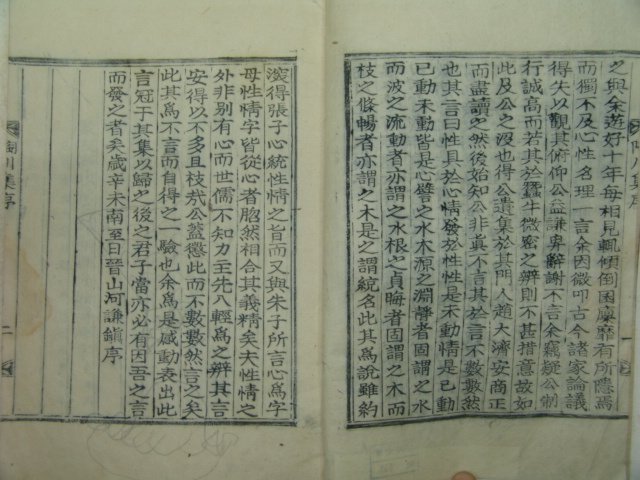 之與余遊好十年每相見輒傾倒囷廩靡有所隱焉
而獨不及心性名理一言余因微叩古今諸家論議
得失以觀其俯仰公益謙卑辭謝不言余竊疑公制
行誠高而若其於蠶牛微密之辨則不甚措意故如
此及公之沒也得公遺集於其門人趙大濟安商正
而盡讀之然後始知公非眞不言其於言不數數然
也其言曰性具於心情發於性性是未動情是已動
已動未動皆是心譬之水木源之淵靜者固謂之水
而波之流動者亦謂之水根之貞晦者固謂之木而
枝之條暢者亦謂之木是之謂統名此其爲說雖約
滾得張子心統性情之旨而又與朱子所言心爲字
母性情字皆從心者脗然相合其義精矣夫性情之
外非別有心而世儒不知力主先入輕爲之辨其言
安得以不多且枝哉公蓋懲此而不數數然言之矣
此其爲不言而自得之一驗也余爲是感動表出此
言冠于其集以歸之後之君子當亦必有因吾之言
而發之者矣歲辛未南至日晉山河謙鎭序
川集序
二